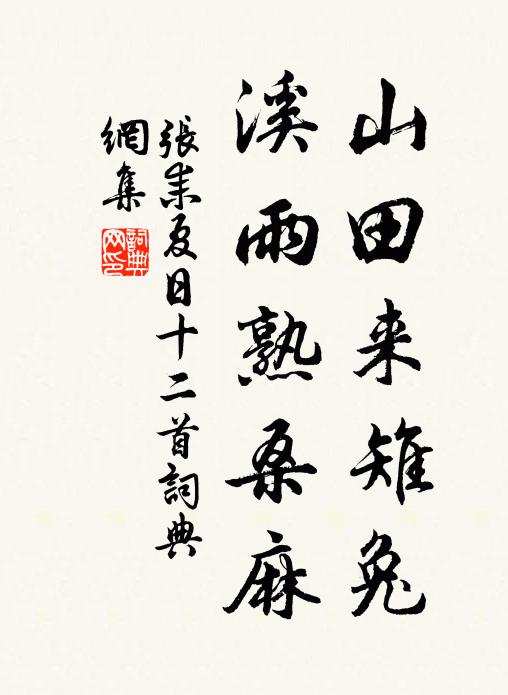 山田来雉兔
溪雨熟桑麻
張耒夏日十二首詞典
網集
詞典
网印